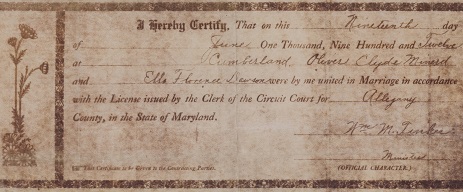 I Hereby Certify, That on this Nineteenth day
of June One Thousand, Nine Hundred and Twelve
at Cumberland, Oliver Clyde Minard
and Ella Florence were by me united in Marriage in accordance
with the License issued by the Clerk of the Circuit Court for Allegany
County, in the State of Maryland.
Wm. M.
Minister
This Certificate to be Given to the Contracting Parties. (OFFICIAL CHARACTER.)